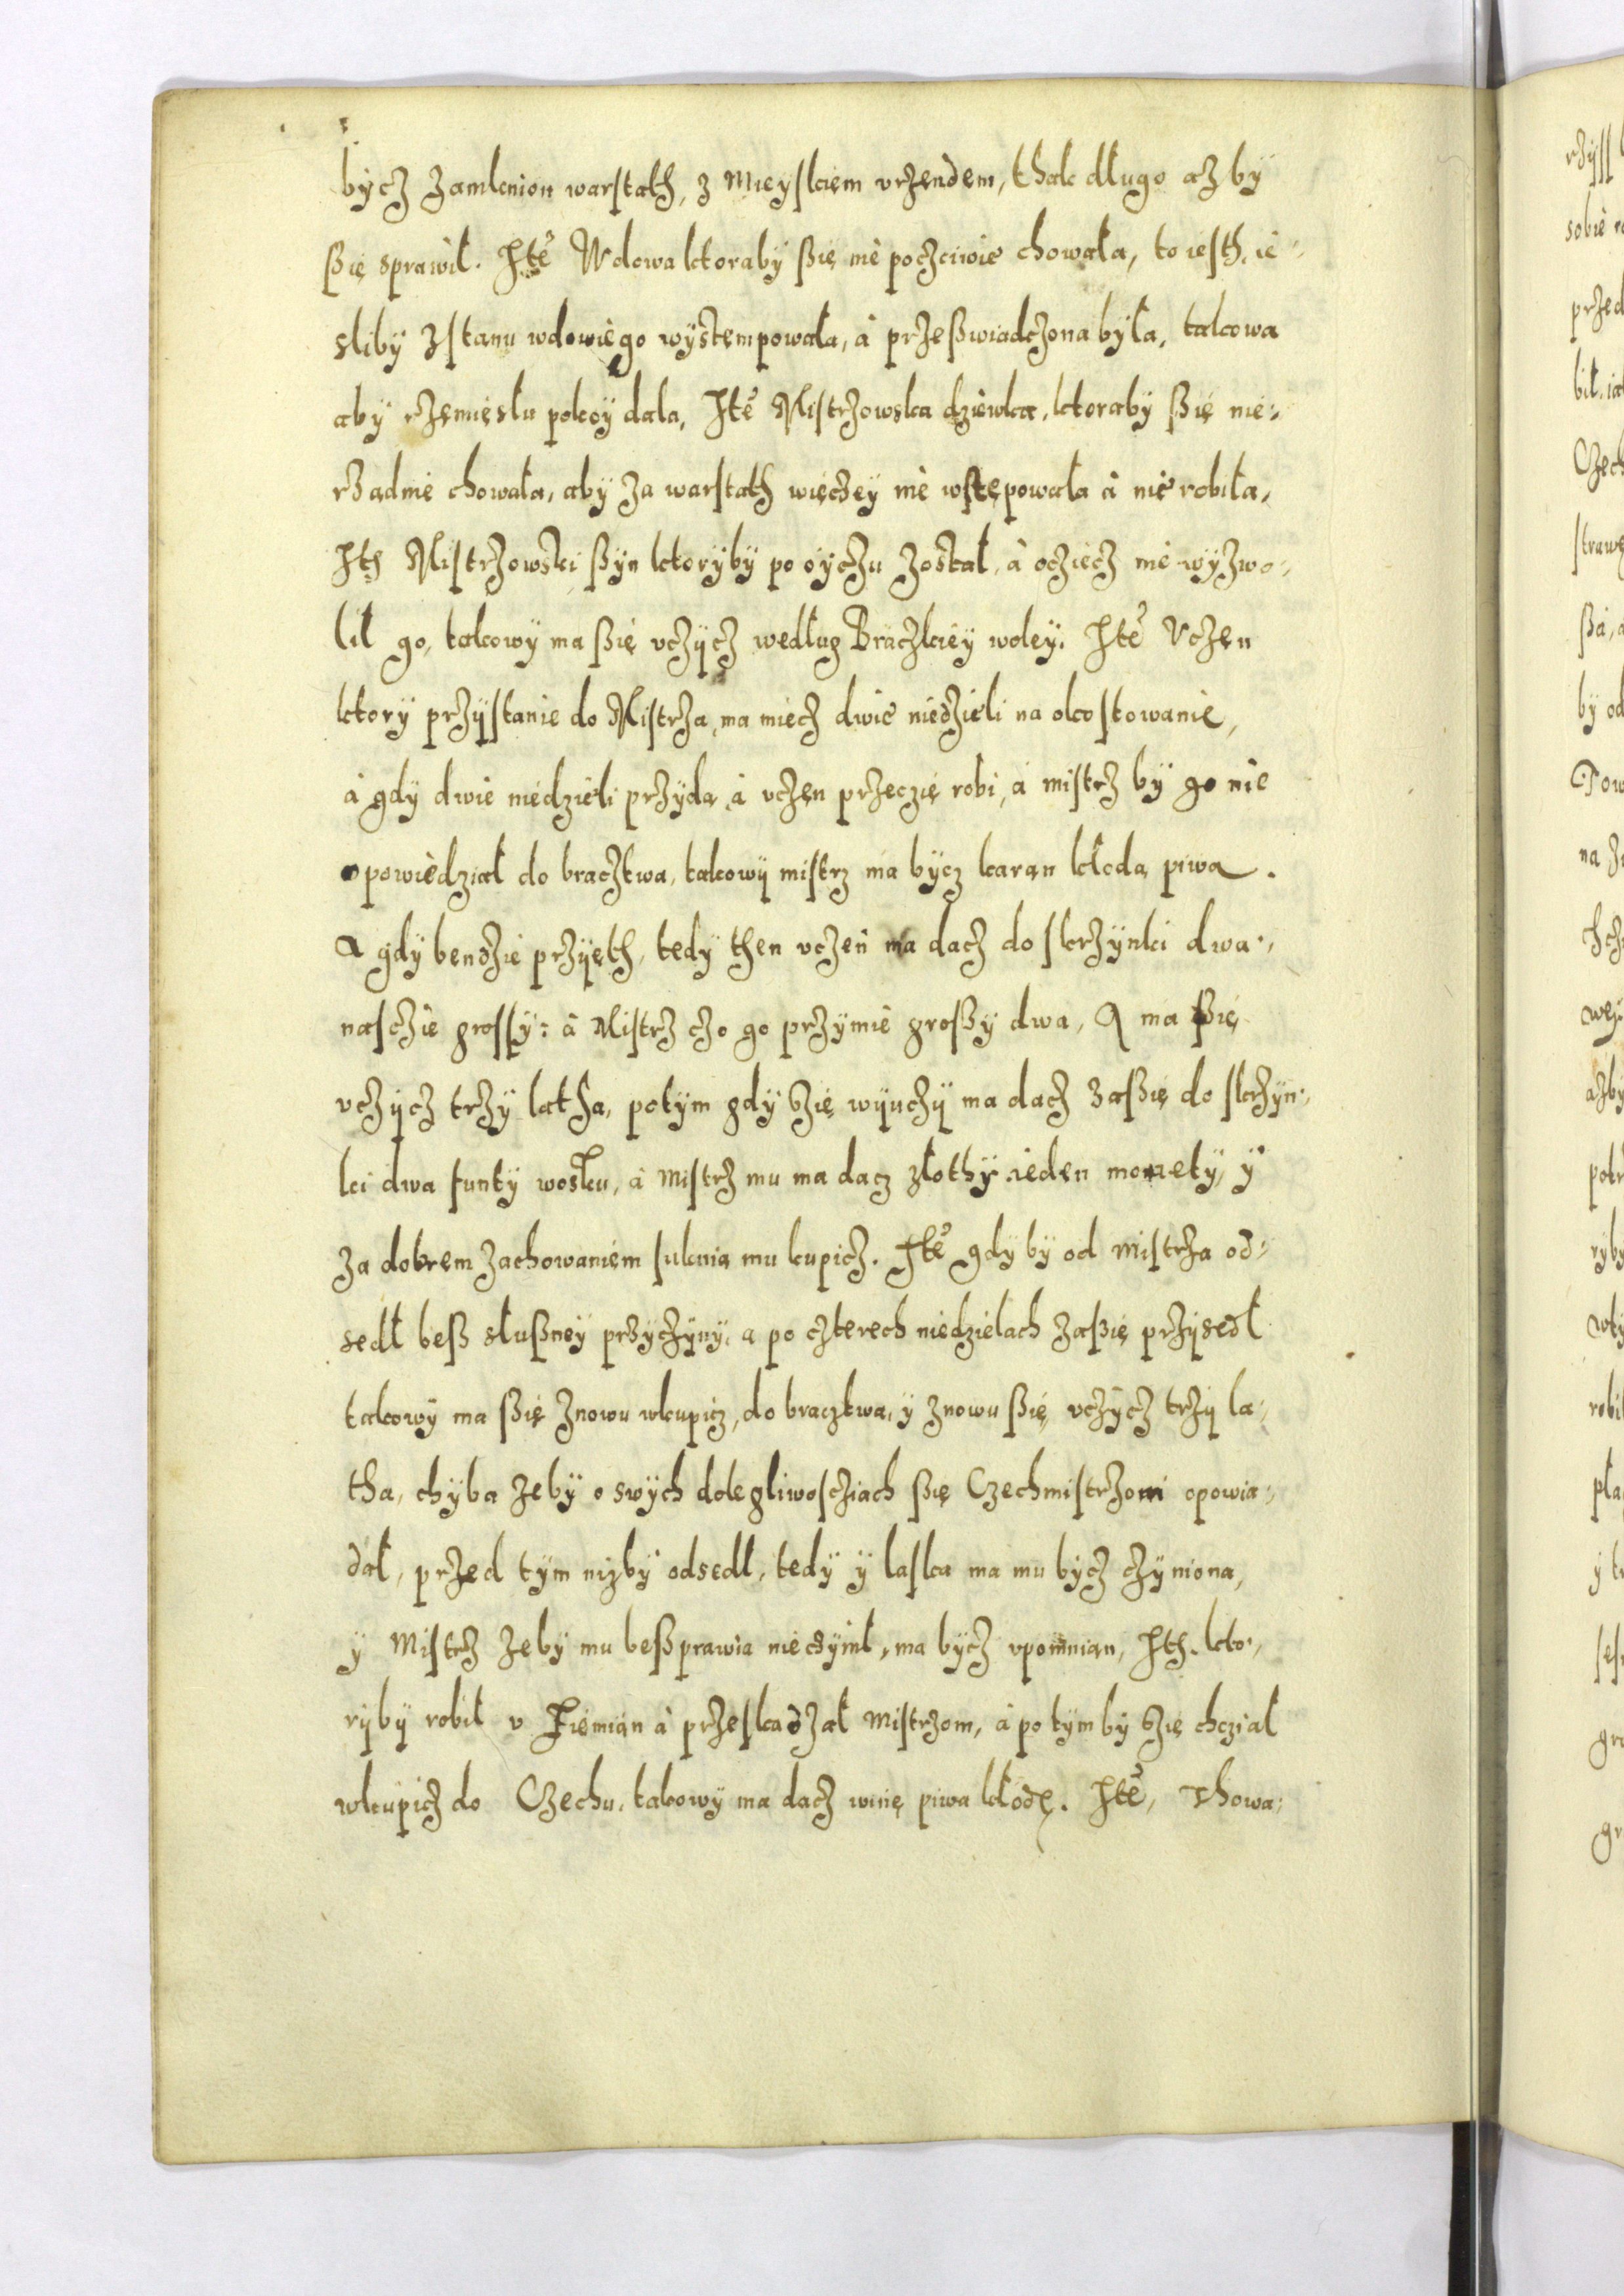 bycz zamknion warstath, z Mieyskiem vrzendem, thak długo azby
ßię sprawił. Ite̅ Wdowa ktoraby ßię nie poczciwie chowała, to iesth, ie-
sliby z stanu wdowiego wystempowała, á przeßwiadczona była, takowa
aby rzemięsłu pokoy dała, Ite̅ Mistrzowska dziewka, ktoraby ßię nie-
rządnie chowała, aby za warstath więczey nie wstępowała á nie robiła,
Ith Mistrzowski ßyn ktoryby po oyczu został, á oczięcz nie wyzwo-
lił go, takowy ma ßię vczycz według Braczkiey woley, Ite̅ Vczen
ktory przystanie do Mistrza, ma miecz dwie niedzieli na okostowanie,
á gdy dwie niedzieli przyda, á vczen przeczię robi, á mistrz by go nie
opowiedział do braczkwa, takowy mistrz ma bycz karan kłoda piwa.
A gdy bendzie przyięth, tedy then vczen ma dacz do skrzynki dwa-
nasczie grossy: á Mistrz czo go przymie großy dwa, A ma ßię
vczycz trzy latha, potym gdy ßię wyuczy ma dacz zaßię do skrzyn-
ki dwa funty wosku, á mistrz mu ma dacz złothy ieden monety, y
za dobrem zachowaniem suknia mu kupicz. Ite̅ gdy by od mistrza od-
sedł beß słußney przyczyny, a po czterech niedzielach zaßię przysedł
takowy ma ßię znowu wkupicz, do bracztwa, y znowu ßię vczycz trzy la-
tha, chyba zeby o swych dolegliwosciach ßię Czechmistrzowi opowia-
dał, przed tym nizby odsedł, tedy y laska ma mu bycz czyniona,
y Mistrz zeby mu beßprawia nie czynił, ma bycz vpomnian, Ith. kto-
ryby robił v Ziemian á przeskadzał Mistrzom, á potym by ßię chcział
wkupicz do Czechu, takowy ma dacz winę piwa kłodę. Ite̅, Thowa-